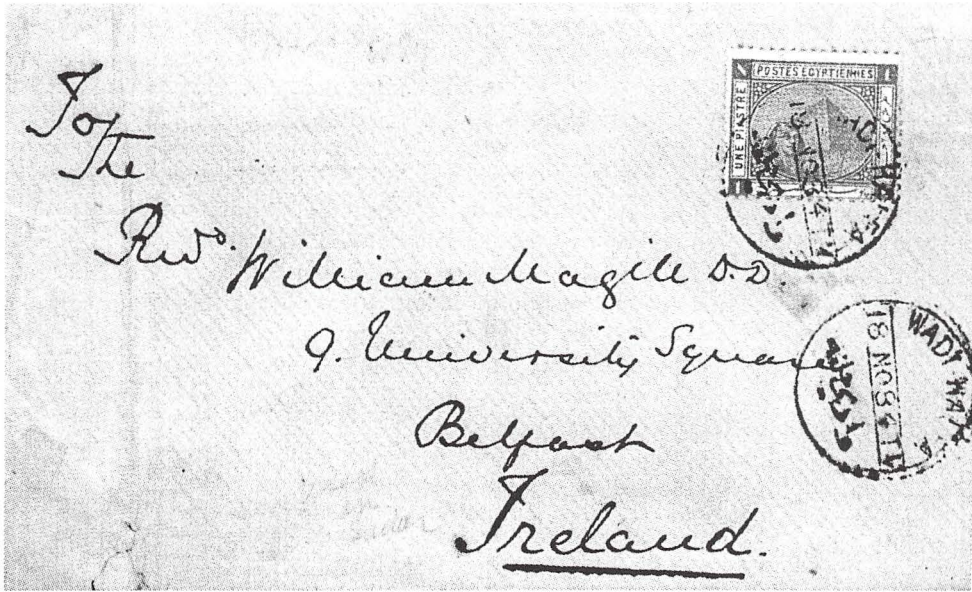 To
The
Revd. William Magill D.D.
9. University Square
Belfast
Ireland.
POSTES EGYPTIENNES
UNE PIASTRE
WADY HALFA
18 NO 84 T IV
WADY HALFA
18 NO 84 T IV